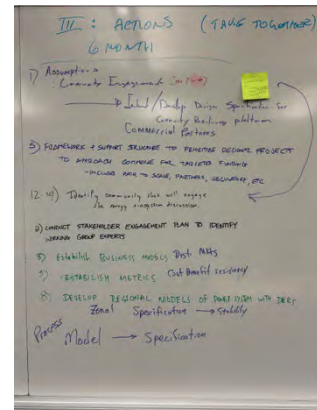 III : ACTIONS (TAKE TOGETHER)
6 MONTH
1) Assumptions
: Community Engagement
Develop Design Specification for
Community Resilience platform
Commercial Partners
3) FRAMEWORK + SUPPORT STRUCTURE TO PRIORITIZE REGIONAL PROJECT
TO APPROACH CONGRESS FOR TARGETED FUNDING
- INCLUDE SCOPE, PARTNERS, DELIVERY, ETC
Identify community that will engage
energy ecosystem discussion.
CONDUCT STAKEHOLDER ENGAGEMENT PLAN TO IDENTIFY
WORKING GROUP EXPERTS
5) Establish BUSINESS MODELS Best
ESTABLISH METRICS Cost Benefit resiliency
8) DEVELOP REGIONAL MODELS OF POWER SYSTEM WITH DERs
Zonal Specification → Stability
Process
Model → Specification